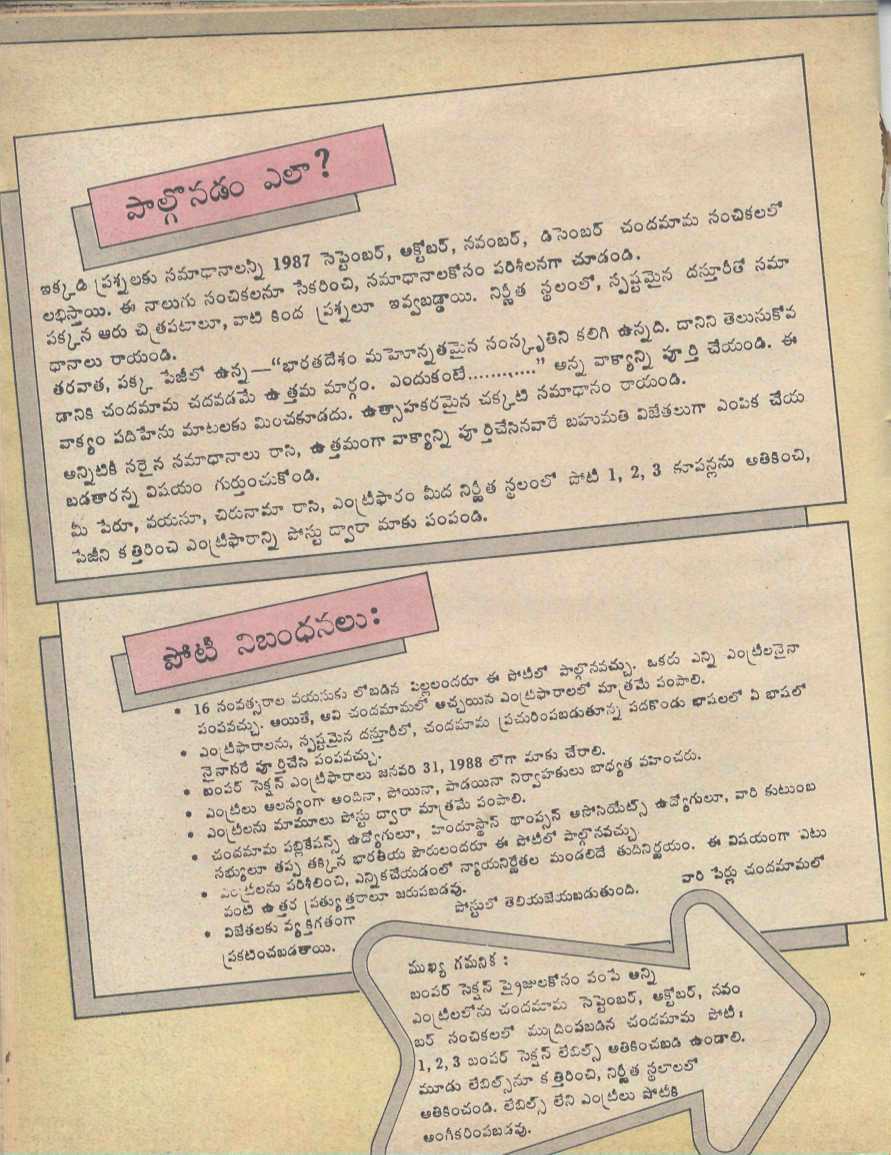 పాల్గొనడం ఎలా?
ఇక్కడి ప్రశ్నలకు సమాధానాలన్నీ 1987 సెప్టెంబర్, అక్టోబర్, నవంబర్, డిసెంబర్ చందమామ సంచికలలో
లభిస్తాయి. ఈ నాలుగు సంచికలనూ సేకరించి, సమాధానాలకోసం పరిశీలనగా చూడండి.
పక్కన ఆరు చిత్రపటాలూ, వాటి కింద ప్రశ్నలూ ఇవ్వబడ్డాయి. నిర్ణీత స్థలంలో, స్పష్టమైన దస్తూరీతో సమా
ధానాలు రాయండి.
తరవాత, పక్క పేజీలో ఉన్న—“భారతదేశం మహోన్నతమైన సంస్కృతిని కలిగి ఉన్నది. దానిని తెలుసుకోవ
డానికి చందమామ చదవడమే ఉత్తమ మార్గం. ఎందుకంటే............” అన్న వాక్యాన్ని పూర్తి చేయండి. ఈ
వాక్యం పదిహేను మాటలకు మించకూడదు. ఉత్సాహకరమైన చక్కటి సమాధానం రాయండి.
అన్నిటికీ సరైన సమాధానాలు రాసి, ఉత్తమంగా వాక్యాన్ని పూర్తిచేసినవారే బహుమతి విజేతలుగా ఎంపిక చేయ
బడతారన్న విషయం గుర్తుంచుకోండి.
మీ పేరూ, వయసూ, చిరునామా రాసి, ఎంట్రిఫారం మీద నిర్ణీత స్థలంలో పోటీ 1, 2, 3 కూపన్లను అతికించి,
పేజీని కత్తిరించి ఎంట్రిఫారాన్ని పోస్టు ద్వారా మాకు పంపండి.
పోటీ నిబంధనలు:
• 16 సంవత్సరాల వయసుకు లోబడిన పిల్లలందరూ ఈ పోటీలో పాల్గొనవచ్చు. ఒకరు ఎన్ని ఎంట్రీలనైనా
పంపవచ్చు. అయితే, అవి చందమామలో అచ్చయిన ఎంట్రిఫారాలలో మాత్రమే పంపాలి.
• ఎంట్రిఫారాలను, స్పష్టమైన దస్తూరీలో, చందమామ ప్రచురింపబడుతూన్న పదకొండు భాషలలో ఏ భాషలో
నైనాసరే పూర్తిచేసి పంపవచ్చు.
• బంపర్ సెక్షన్ ఎంట్రిఫారాలు జనవరి 31, 1988 లోగా మాకు చేరాలి.
• ఎంట్రీలు ఆలస్యంగా అందినా, పోయినా, పాడయినా నిర్వాహకులు బాధ్యత వహించరు.
• ఎంట్రీలను మామూలు పోస్టు ద్వారా మాత్రమే పంపాలి.
• చందమామ పబ్లికేషన్స్ ఉద్యోగులూ, హిందూస్థాన్ థాంప్సన్ అసోసియేట్స్ ఉద్యోగులూ, వారి కుటుంబ
సభ్యులూ తప్ప తక్కిన భారతీయ పౌరులందరూ ఈ పోటీలో పాల్గొనవచ్చు.
• ఎంట్రీలను పరిశీలించి, ఎన్నికచేయడంలో న్యాయనిర్ణేతల మండలిదే తుదినిర్ణయం. ఈ విషయంగా ఎటు
వంటి ఉత్తర ప్రత్యుత్తరాలూ జరుపబడవు.
• విజేతలకు వ్యక్తిగతంగా పోస్టులో తెలియజేయబడుతుంది. వారి పేర్లు చందమామలో
ప్రకటించబడతాయి.
ముఖ్య గమనిక :
బంపర్ సెక్షన్ ప్రైజులకోసం పంపే అన్ని
ఎంట్రీలలోను చందమామ సెప్టెంబర్, అక్టోబర్, నవం
బర్ సంచికలలో ముద్రింపబడిన చందమామ పోటీ :
1, 2, 3 బంపర్ సెక్షన్ లేబిల్స్ అతికించబడి ఉండాలి.
మూడు లేబిల్స్‌నూ కత్తిరించి, నిర్ణీత స్థలాలలో
అతికించండి. లేబిల్స్ లేని ఎంట్రీలు పోటీకి
అంగీకరింపబడవు.